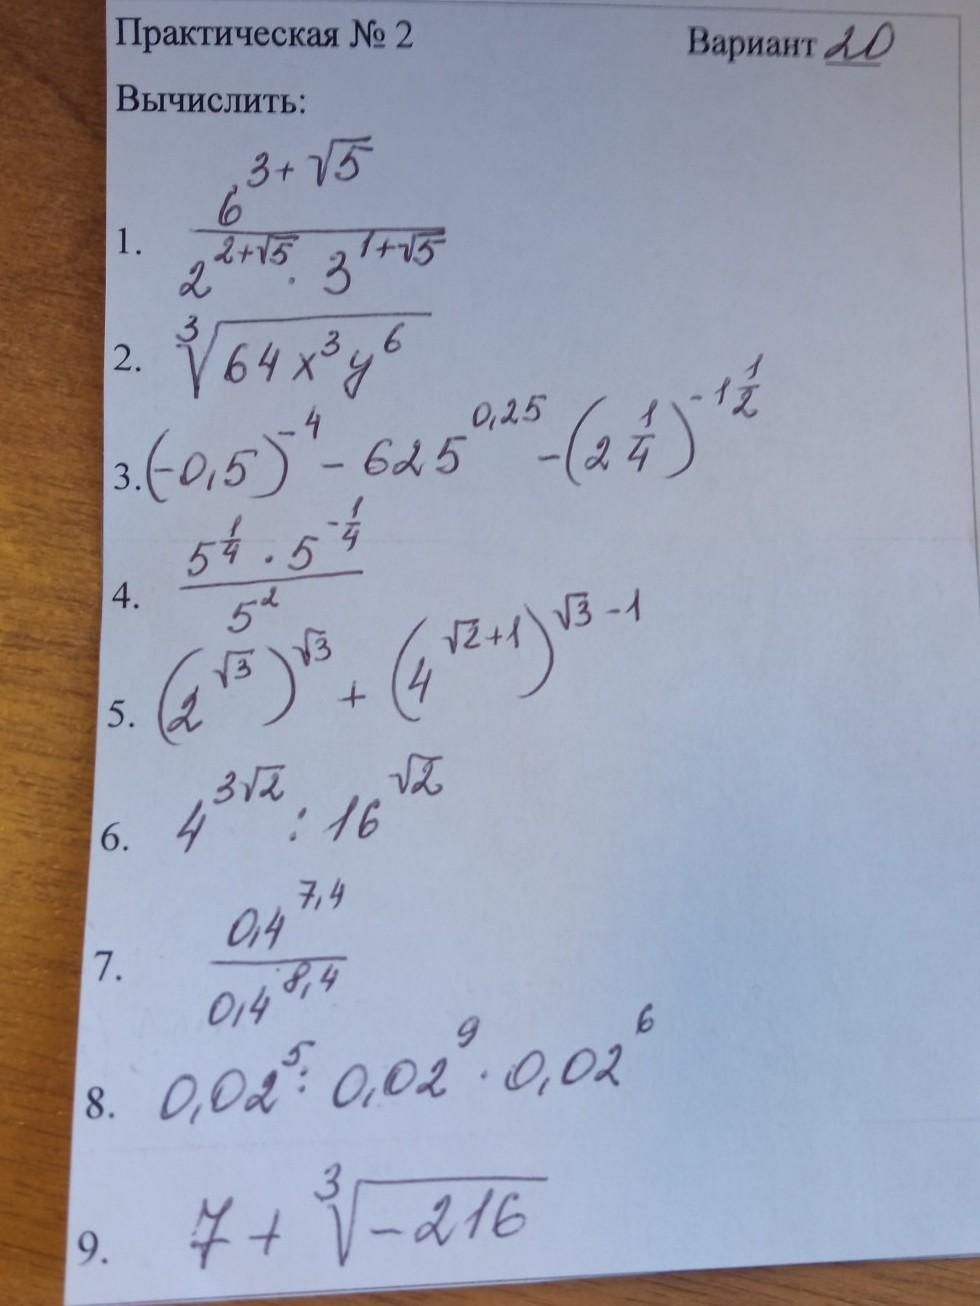 Практическая № 2 Вариант 20
Вычислить:
1. 6^(3+√5) / (2^(2+√5) · 3^(1+√5))
2. ∛(64x³y⁶)
3. (-0,5)^(-4) - 625^(0,25) - (2 1/4)^(-1 1/2)
4. (5^(1/4) · 5^(-1/4)) / 5²
5. (2^(√3))^(√3) + (4^(√2+1))^(√3-1)
6. 4^(3√2) : 16^(√2)
7. 0,4^(7,4) / 0,4^(8,4)
8. 0,02⁵ : 0,02⁹ · 0,02⁶
9. 7 + ∛(-216)